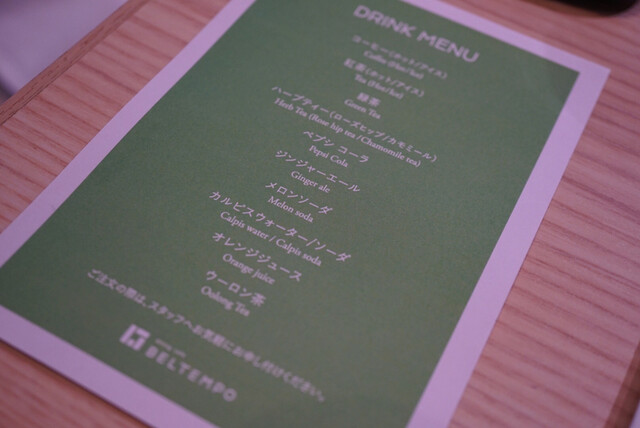 DRINK MENU
コーヒー(ホット/アイス)
Coffee (Hot/Ice)
紅茶(ホット/アイス)
Tea (Hot/Ice)
緑茶
Green Tea
ハーブティー(ローズヒップ/カモミール)
Herb Tea (Rose hip tea / Chamomile tea)
ペプシ コーラ
Pepsi Cola
ジンジャーエール
Ginger ale
メロンソーダ
Melon soda
カルピスウォーター/ソーダ
Calpis water / Calpis soda
オレンジジュース
Orange juice
ウーロン茶
Oolong Tea
ご注文の際は、スタッフへお気軽にお申し付けください。
BELTEMPO